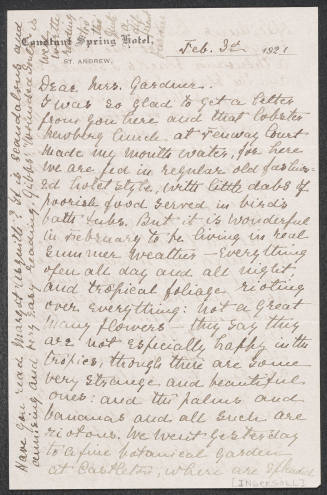 Constant Spring Hotel,
ST. ANDREW.
Feb. 3d 1921
Dear Mrs. Gardner.
I was so glad to get a letter
from you here and that lobster
Newberg lunch at Fenway Court
made my mouth water, for here
we are fed in regular old fashion-
ed hotel style, with little dabs of
poorish food served in bird's
bath tubs. But it is wonderful
in February to be living in real
summer weather - Everything
open all day and all night,
and tropical foliage rioting
over everything: not a great
many flowers - they say they
are not especially happy in the
tropics, though there are some
very strange and beautiful
ones: and the palms and
bananas and all such are
riotous. We went yesterday
to a fine botanical garden
at Castleton, where are splendid
[INGERSOLL]
Have you read Margot Asquith? It is scandalous and
amusing and very easy reading